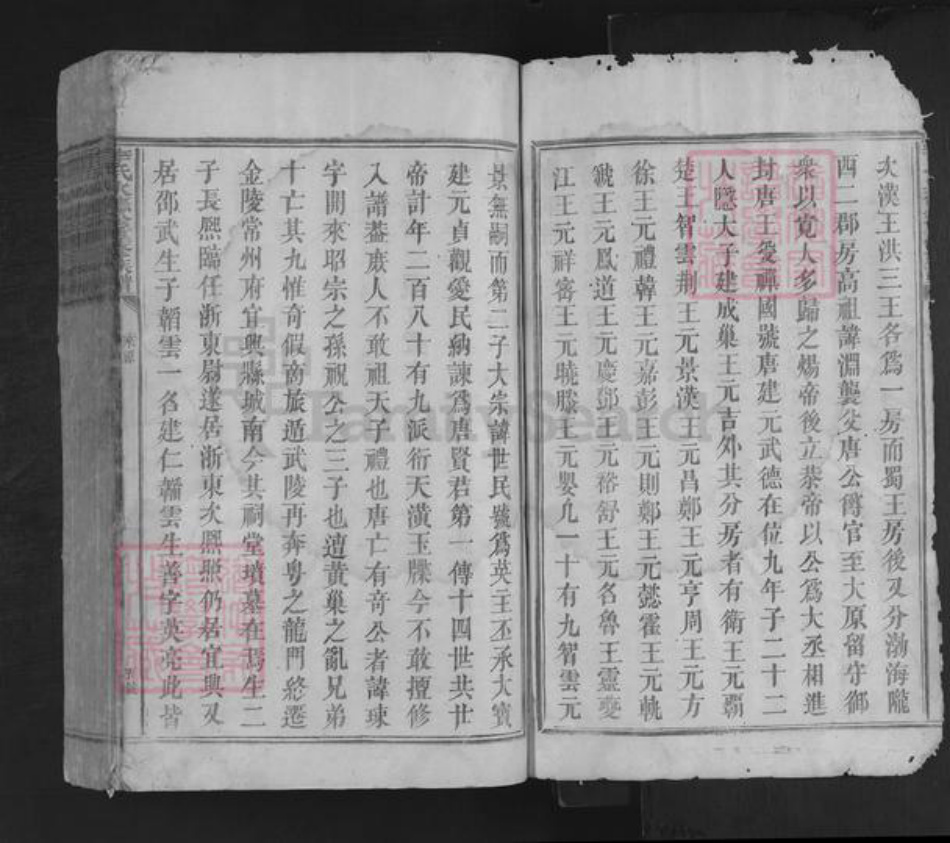 次漢王洪三王各爲一房而蜀王房後又分渤海隴
西二郡房高祖諱淵襲父唐公爵官至大原留守御
衆以寬人多歸之煬帝後立恭帝以公爲大丞相進
封唐王受禪國號唐建元武德在位九年子二十二
人隱大子建成巢王元吉外其分房者有衛王元霸
楚王智雲荆王元景漢王元昌鄭王元亨周王元方
徐王元禮韓王元嘉彭王元則鄭王元懿霍王元軌
虢王元鳳道王元慶鄧王元裕舒王元名魯王靈夔
江王元祥密王元曉滕王元嬰凡一十有九智雲元
景無嗣而第二子大宗諱世民號爲英主丕承大寶
建元貞觀愛民納諫爲唐賢君第一傳十四世共廿
帝計年二百八十有九派衍天潢玉牒今不敢擅修
入譜葢庻人不敢祖天子禮也唐亡有奇公者諱琜
字開來昭宗之孫祝公之三子也遭黄巢之亂兄弟
十亡其九惟奇假商旅遁武陵再奔粤之龍門終遷
金陵常州府宜興縣城南今其祠堂墳墓在焉生二
子長熈臨任浙東尉遂居浙東次熈照仍居宜興又
居邵武生子韜雲一名建仁韜雲生善字英亮此皆
來源
FamilySearch